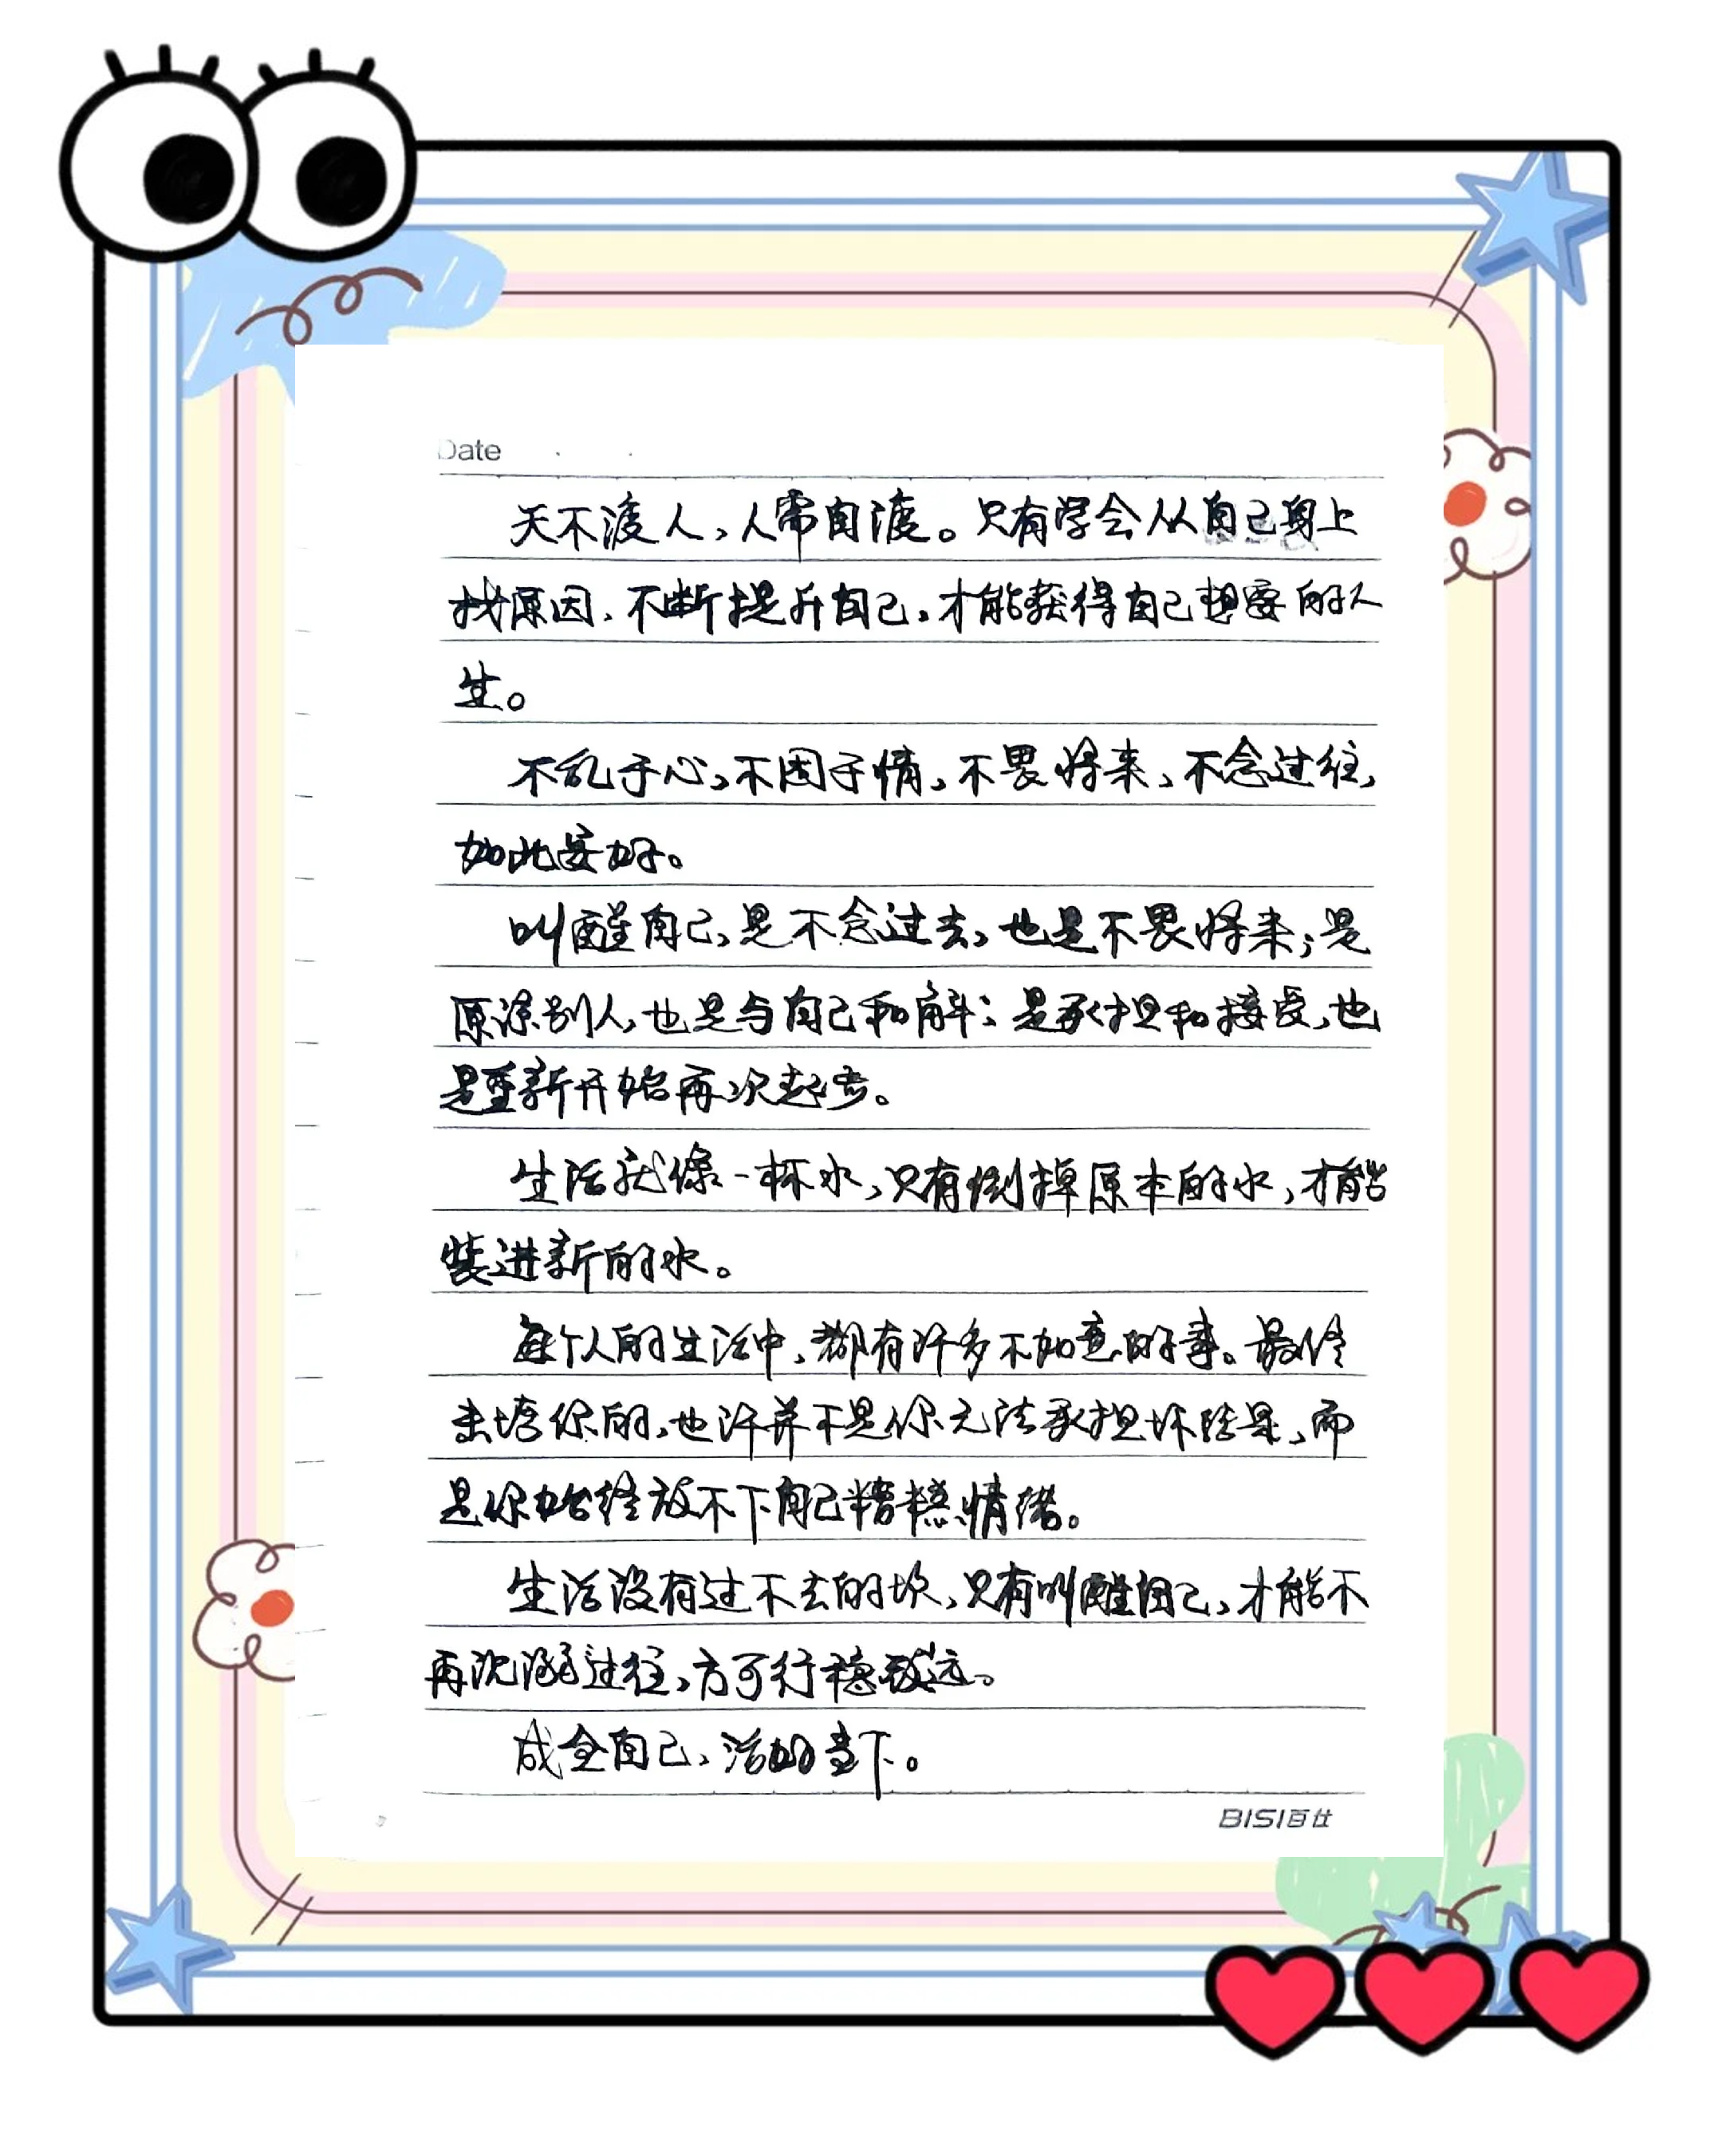 Date
天不渡人，人需自渡。只有学会从自己身上
找原因，不断提升自己，才能获得自己想要的人
生。
不乱于心，不困于情，不畏将来，不念过往，
如此安好。
叫醒自己，是不念过去，也是不畏将来；是
原谅别人，也是与自己和解；是承担和接受，也
是重新开始再次起步。
生活就像一杯水，只有倒掉原本的水，才能
装进新的水。
每个人的生活中，都有许多不如意的事。最终
击垮你的，也许并不是你无法承担坏结果，而
是你始终放不下自己糟糕情绪。
生活没有过不去的坎，只有叫醒自己，才能不
再沉溺过往，方可行稳致远。
成全自己，活好当下。
BISI百仕